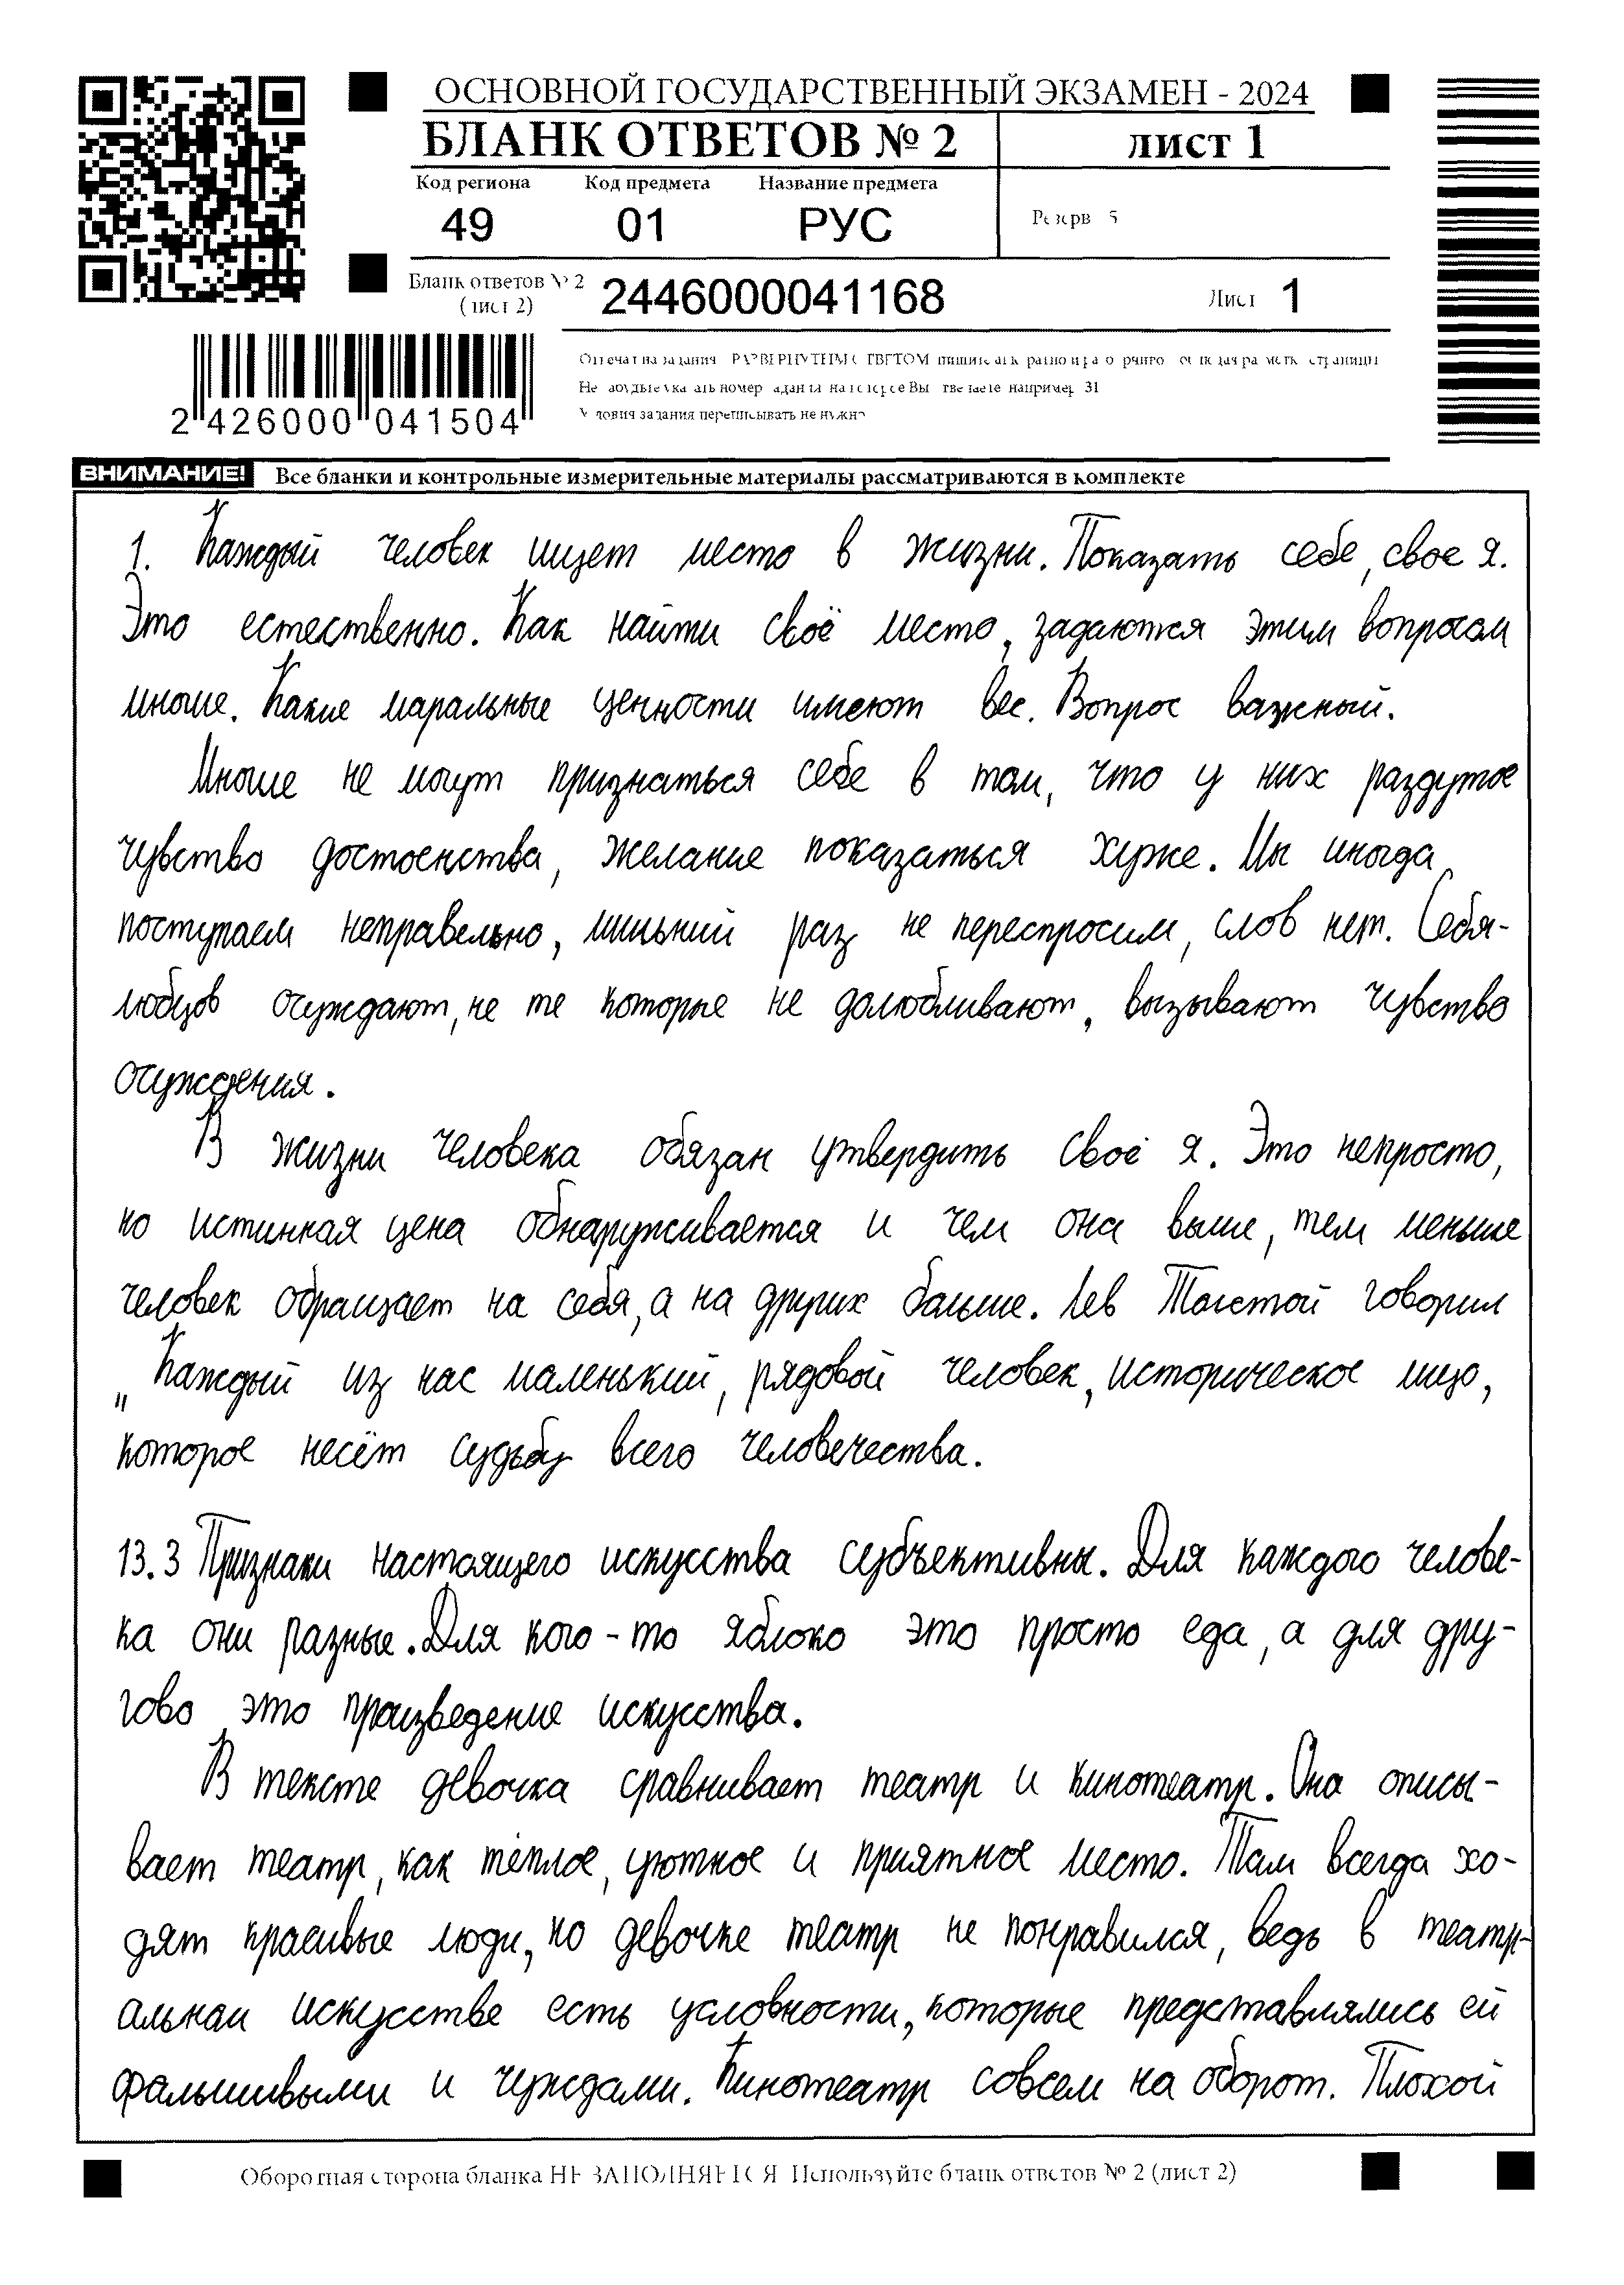 ОСНОВНОЙ ГОСУДАРСТВЕННЫЙ ЭКЗАМЕН - 2024
БЛАНК ОТВЕТОВ № 2
ЛИСТ 1
Код региона Код предмета Название предмета
49 01 РУС
Резерв 5
Бланк ответов № 2
(лист 2)
2446000041168
Лист 1
2 426000 041504
ВНИМАНИЕ! Все бланки и контрольные измерительные материалы рассматриваются в комплекте
1. Каждый человек ищет место в жизни. Показать себе, свое я.
Это естественно. Как найти своё место, задаются этим вопросом
многие. Какие маральные ценности имеют вес. Вопрос важный.
Многие не могут признаться себе в том, что у них раздутое
чувство достоенства, желание показаться хуже. Мы иногда
поступаем неправельно, лишьний раз не переспросим, слов нет. Себя-
любцов осуждают, не те которые не долюбливают, вызывают чувство
осуждения.
В жизни человека обязан утвердить своё я. Это непросто,
но истинная цена обнаруживается и чем она выше, тем меньше
человек обращает на себя, а на других больше. Лев Толстой говорил
„Каждый из нас маленький, рядовой человек, историческое лицо,
которое несёт судьбу всего человечества.
13.3 Признаки настоящего искусства субъективны. Для каждого челове-
ка они разные. Для кого-то яблоко это просто еда, а для дру-
гово это произведение искусства.
В тексте девочка сравнивает театр и кинотеатр. Она описы-
вает театр, как тёплое, уютное и приятное место. Там всегда хо-
дят красивые люди, но девочке театр не понравился, ведь в театр-
альном искусстве есть условности, которые представлялись ей
фальшивыми и чуждами. Кинотеатр совсем на оборот. Плохой
Оборотная сторона бланка НЕ ЗАПОЛНЯЕТСЯ. Используйте бланк ответов № 2 (лист 2)